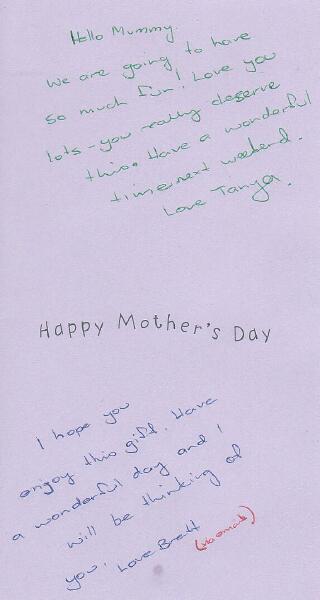 Hello Mummy.
We are going to have
so much fun! Love you
lots - you really deserve
this. Have a wonderful
time next weekend.
Love Tanya.
Happy Mother's Day
I hope you
enjoy this gift. Have
a wonderful day and I
will be thinking of
you. Love Brett
(via email)